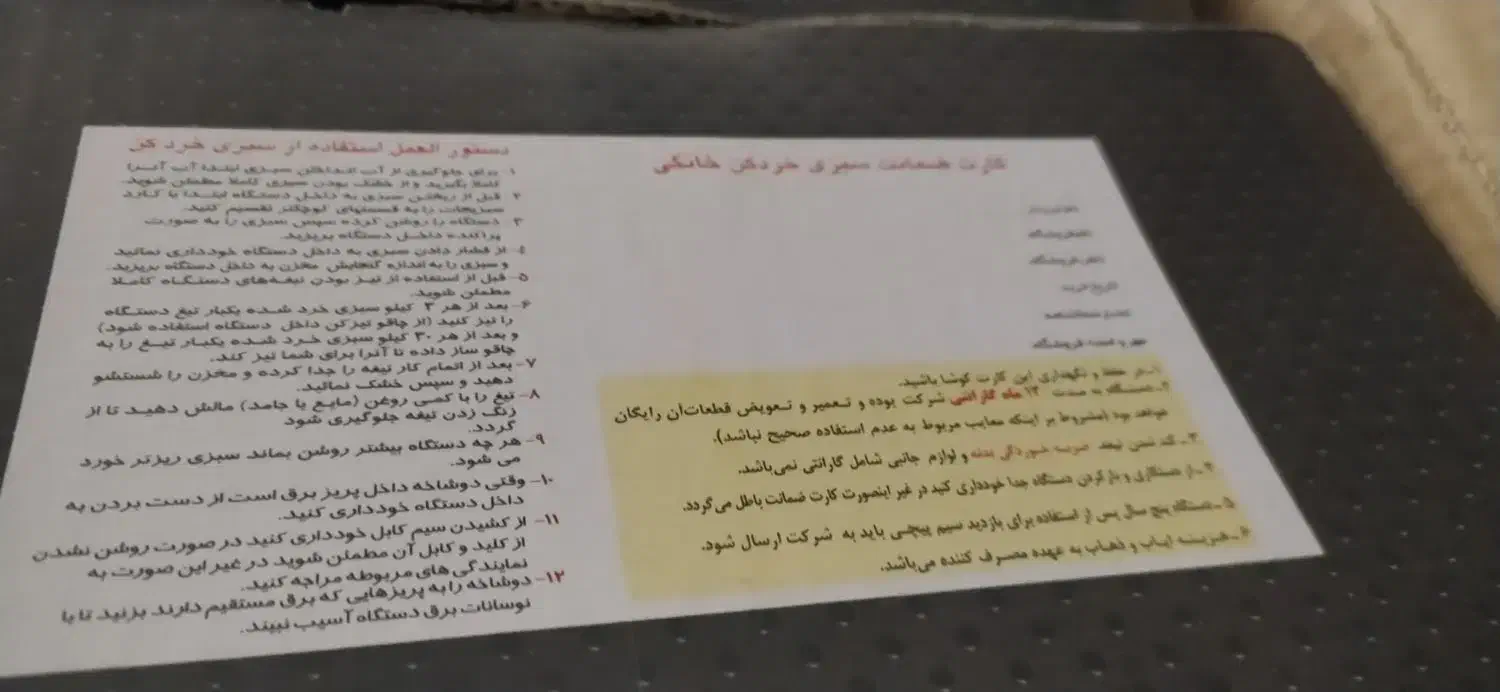 کارت ضمانت سبزی خردکن خانگی
نام فروشگاه
تلفن فروشگاه
تاریخ خرید
مهر و امضاء فروشگاه
۱- در حفظ و نگهداری این کارت کوشا باشید.
۲- دستگاه به مدت ۱۲ ماه گارانتی شرکت بوده و تعمیر و تعویض قطعات آن رایگان
خواهد بود (مشروط بر اینکه معایب مربوط به عدم استفاده صحیح نباشد).
۳- کند شدن تیغه ضربه خوردگی بدنه و لوازم جانبی شامل گارانتی نمی‌باشد.
۴- از دستکاری و باز کردن دستگاه جدا خودداری کنید در غیر اینصورت کارت ضمانت باطل می‌گردد.
۵- دستگاه پنج سال پس از استفاده برای بازدید سیم پیچی باید به شرکت ارسال شود.
۶- هزینه ایاب و ذهاب به عهده مصرف کننده می‌باشد.
دستور العمل استفاده از سبزی خرد کن
۱- برای جلوگیری از آب انداختن سبزی ابتدا آب آنرا
کاملا بگیرید و از خشک بودن سبزی کاملا مطمئن شوید.
۲- قبل از ریختن سبزی به داخل دستگاه ابتدا با کارد
سبزیجات را به قسمتهای کوچکتر تقسیم کنید.
۳- دستگاه را روشن کرده سپس سبزی را به صورت
پراکنده داخل دستگاه بریزید.
۴- از فشار دادن سبزی به داخل دستگاه خودداری نمائید
و سبزی را به اندازه گنجایش مخزن به داخل دستگاه بریزید.
۵- قبل از استفاده از تیز بودن تیغه‌های دستگاه کاملا
مطمئن شوید.
۶- بعد از هر ۳ کیلو سبزی خرد شده یکبار تیغ دستگاه
را تیز کنید (از چاقو تیزکن داخل دستگاه استفاده شود)
و بعد از هر ۳۰ کیلو سبزی خرد شده یکبار تیغ را به
چاقو ساز داده تا آنرا برای شما تیز کند.
۷- بعد از اتمام کار تیغه را جدا کرده و مخزن را شستشو
دهید و سپس خشک نمائید.
۸- تیغ را با کمی روغن (مایع یا جامد) مالش دهید تا از
زنگ زدن تیغه جلوگیری شود
گردد.
۹- هر چه دستگاه بیشتر روشن بماند سبزی ریزتر خورد
می شود.
۱۰- وقتی دوشاخه داخل پریز برق است از دست بردن به
داخل دستگاه خودداری کنید.
۱۱- از کشیدن سیم کابل خودداری کنید در صورت روشن نشدن
از کلید و کابل آن مطمئن شوید در غیر این صورت به
نمایندگی های مربوطه مراجعه کنید.
۱۲- دوشاخه را به پریزهایی که برق مستقیم دارند بزنید تا با
نوسانات برق دستگاه آسیب نبیند.